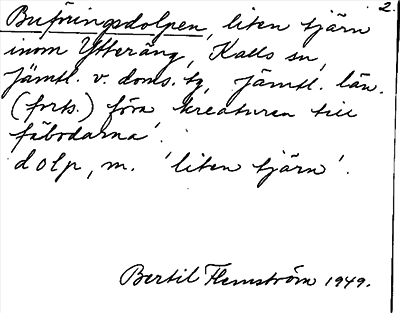 2.
Buföringsdolpen, liten tjärn
inom Ytteräng, Kalls sn,
Jämtl. v. doms. tg, Jämtl. län.
(forts.) föra kreaturen till
fäbodarna'.
dolp, m. 'liten tjärn'.
Bertil Flemström 1949.